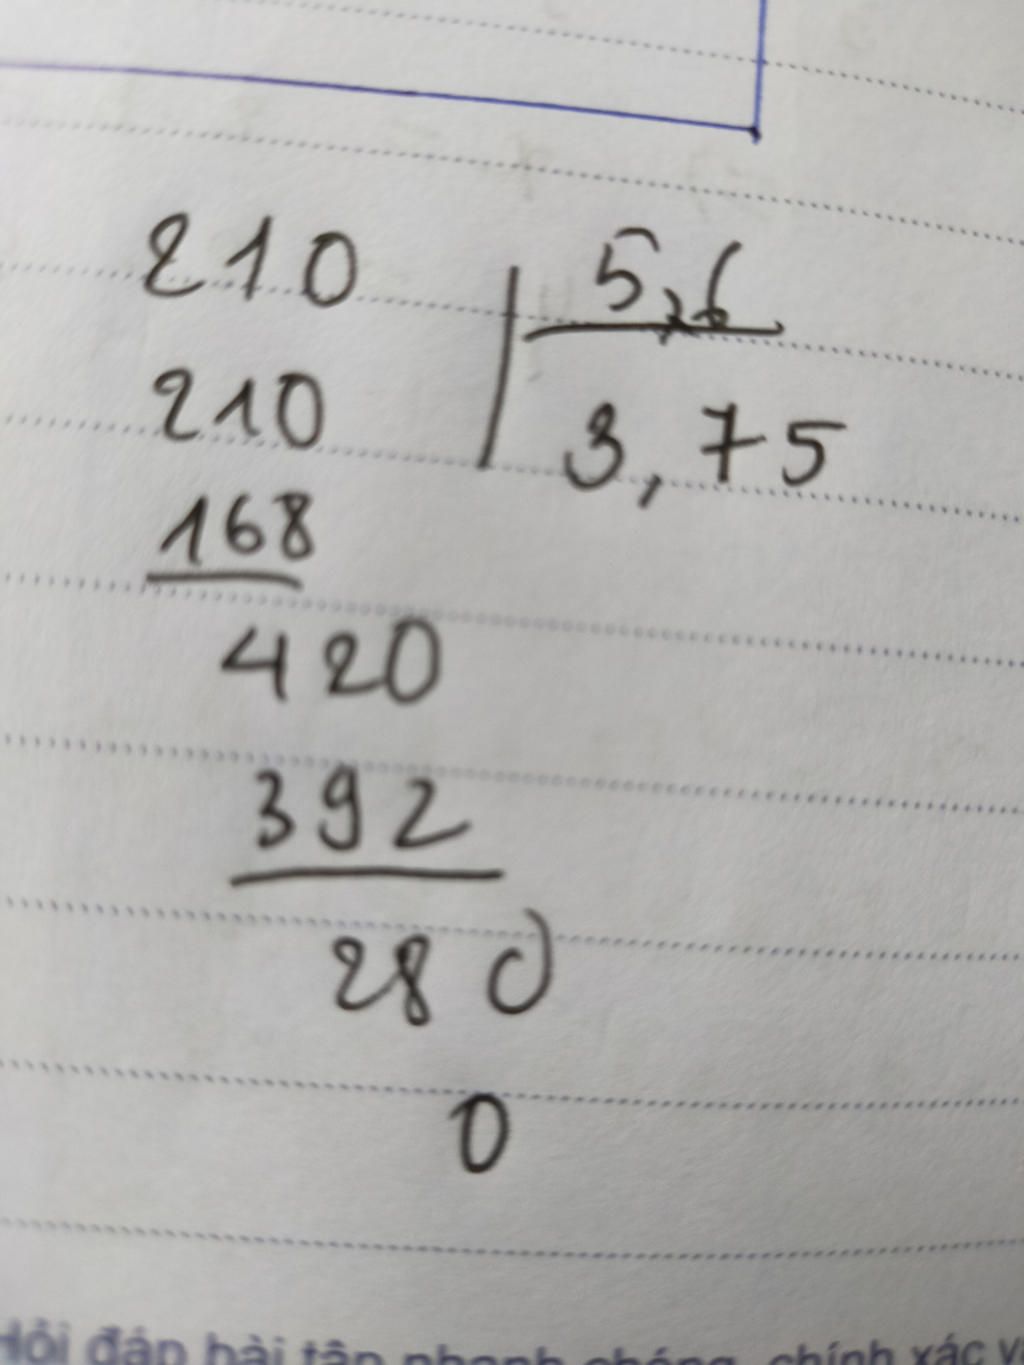 210 5,6
210 3,75
168
420
392
280
0
Hỏi đáp bài tập nhanh chóng, chính xác